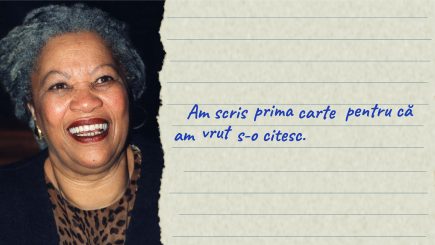 Am scris prima carte pentru că
am vrut s-o citesc.